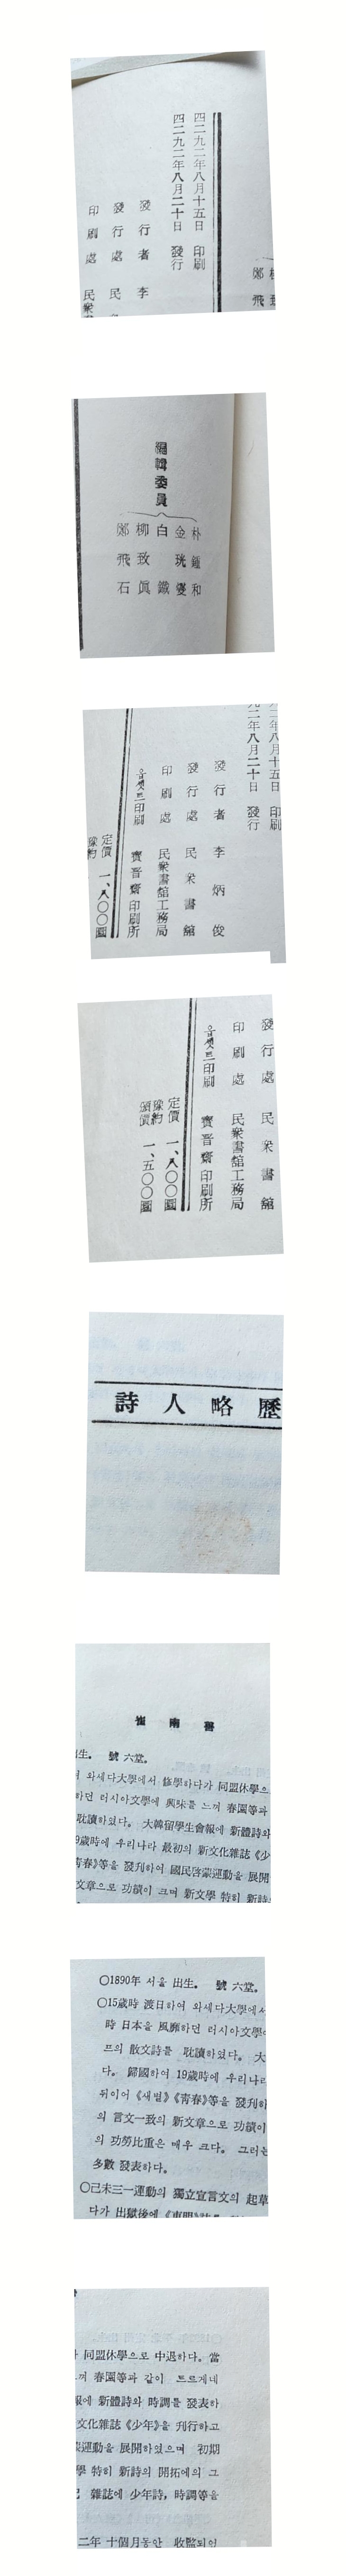 四二九二年八月十五日 印刷
四二九二年八月二十日 發行
發行者 李
發行處 民
印刷處 民衆
鄭飛
編輯委員
朴鍾和
金珖燮
白鐵
柳致眞
鄭飛石
二年八月十五日 印刷
二年八月二十日 發行
發行者 李炳俊
發行處 民衆書館
印刷處 民衆書館工務局
옵셋트印刷 寶晋齋印刷所
定價 一、八〇〇圜
豫約
發行處 民衆書館
印刷處 民衆書館工務局
옵셋트印刷 寶晋齋印刷所
定價 一、八〇〇圜
豫約頒價 一、五〇〇圜
詩人略歷
崔南善
出生。 號 六堂。
와세다大學에서 修學하다가 同盟休學으
하던 러시아文學에 興味를 느껴 春園等과
耽讀하였다。 大韓留學生會報에 新體詩와
9歲時에 우리나라 最初의 新文化雜誌《少
靑春》等을 發刊하여 國民啓蒙運動을 展開
文章으로 功績이 크며 新文學 特히 新詩
〇1890年 서울 出生。 號 六堂。
〇15歲時 渡日하여 와세다大學에서
時 日本을 風靡하던 러시아文學
프의 散文詩를 耽讀하였다。 大
다。 歸國하여 19歲時에 우리나라
뒤이어 《새별》《靑春》等을 發刊하
의 言文一致의 新文章으로 功績이
의 功勞比重은 매우 크다。 그러는
多數 發表하다。
〇己未三一運動의 獨立宣言文의 起草
다가 出獄後에 《東明》
同盟休學으로 中退하다。當
껴 春園等과 같이 트르게네
報에 新體詩와 時調를 發表하
文化雜誌《少年》을 刊行하고
蒙運動을 展開하였으며 初期
學 特히 新詩의 開拓에의 그
雜誌에 少年詩, 時調等을
二年 十個月동안 收監되었